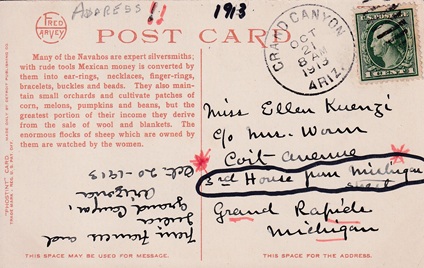 ADDRESS !! 1913
FRED
HARVEY
POST CARD
GRAND CANYON
OCT
21
8 AM
1913
ARIZ.
1 CENT 1
Many of the Navahos are expert silversmiths;
with rude tools Mexican money is converted by
them into ear-rings, necklaces, finger-rings,
bracelets, buckles and beads. They also main-
tain small orchards and cultivate patches of
corn, melons, pumpkins and beans, but the
greatest portion of their income they derive
from the sale of wool and blankets. The
enormous flocks of sheep which are owned by
them are watched by the women.
"PHOSTINT" CARD
Miss Ellen Kuenzi
c/o Mrs. Worn
Coit avenue
3rd House from Michigan
street
Grand Rapids
Michigan
From Frances and
Grand Canyon,
Arizona
Oct. 20-1913
THIS SPACE MAY BE USED FOR MESSAGE.
THIS SPACE IS FOR THE ADDRESS.